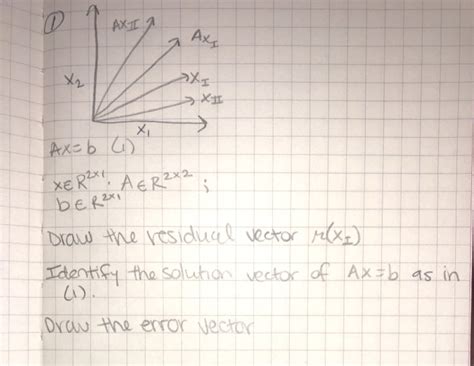 ①
AxII
AxI
x2
xI
xII
x1
Ax=b (1)
x∈R^2x1; A∈R^2x2 ;
b∈R^2x1
Draw the residual vector r(xI)
Identify the solution vector of Ax=b as in
(1).
Draw the error vector